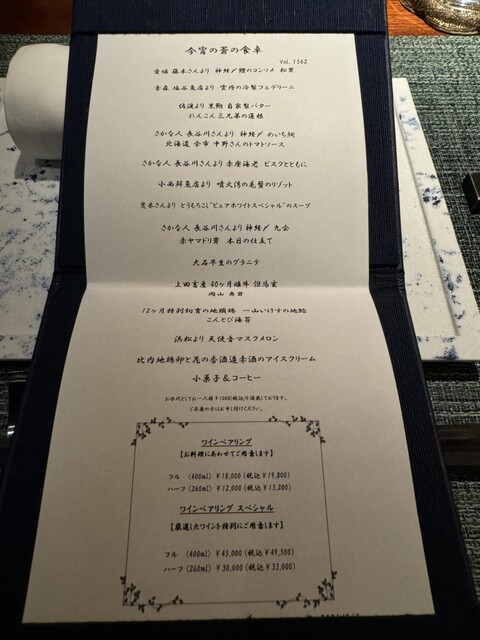 今宵の蒼の食卓
Vol. 1562
愛媛 藤本さんより 神経〆鱧のコンソメ 松茸
青森 塩谷魚店より 雲丹の冷製フェデリーニ
佐渡より 黒鮑 自家製バター
れんこん三兄弟の蓮根
さかな人 長谷川さんより 神経〆 めいち鯛
北海道 余市 中野さんのトマトソース
さかな人 長谷川さんより 赤座海老 ビスクとともに
小西鮮魚店より 噴火湾の毛蟹のリゾット
さんより とうもろこし"ピュアホワイトスペシャル"のスープ
さかな人 長谷川さんより 神経〆 九会
赤ヤマドリ茸 本日の仕立て
大石早生のグラニテ
上田畜産 40ヶ月雌牛 但馬玄
岡山
12ヶ月特別飼育の地頭鶏 一山いけすの地蛤
こんとび海苔
浜松より 天使音マスクメロン
比内地鶏卵と花の香酒造赤酒のアイスクリーム
小菓子&コーヒー
お水代としてお一人様¥1000(税込)を頂戴しております。
ご不要の方はお申し付けください。
ワインペアリング
【お料理にあわせてご用意します】
フル (400ml) ¥18,000 (税込¥19,800)
ハーフ (260ml) ¥12,000 (税込¥13,200)
ワインペアリング スペシャル
【厳選したワインを特別にご用意します】
フル (400ml) ¥45,000 (税込¥49,500)
ハーフ (260ml) ¥30,000 (税込¥33,000)